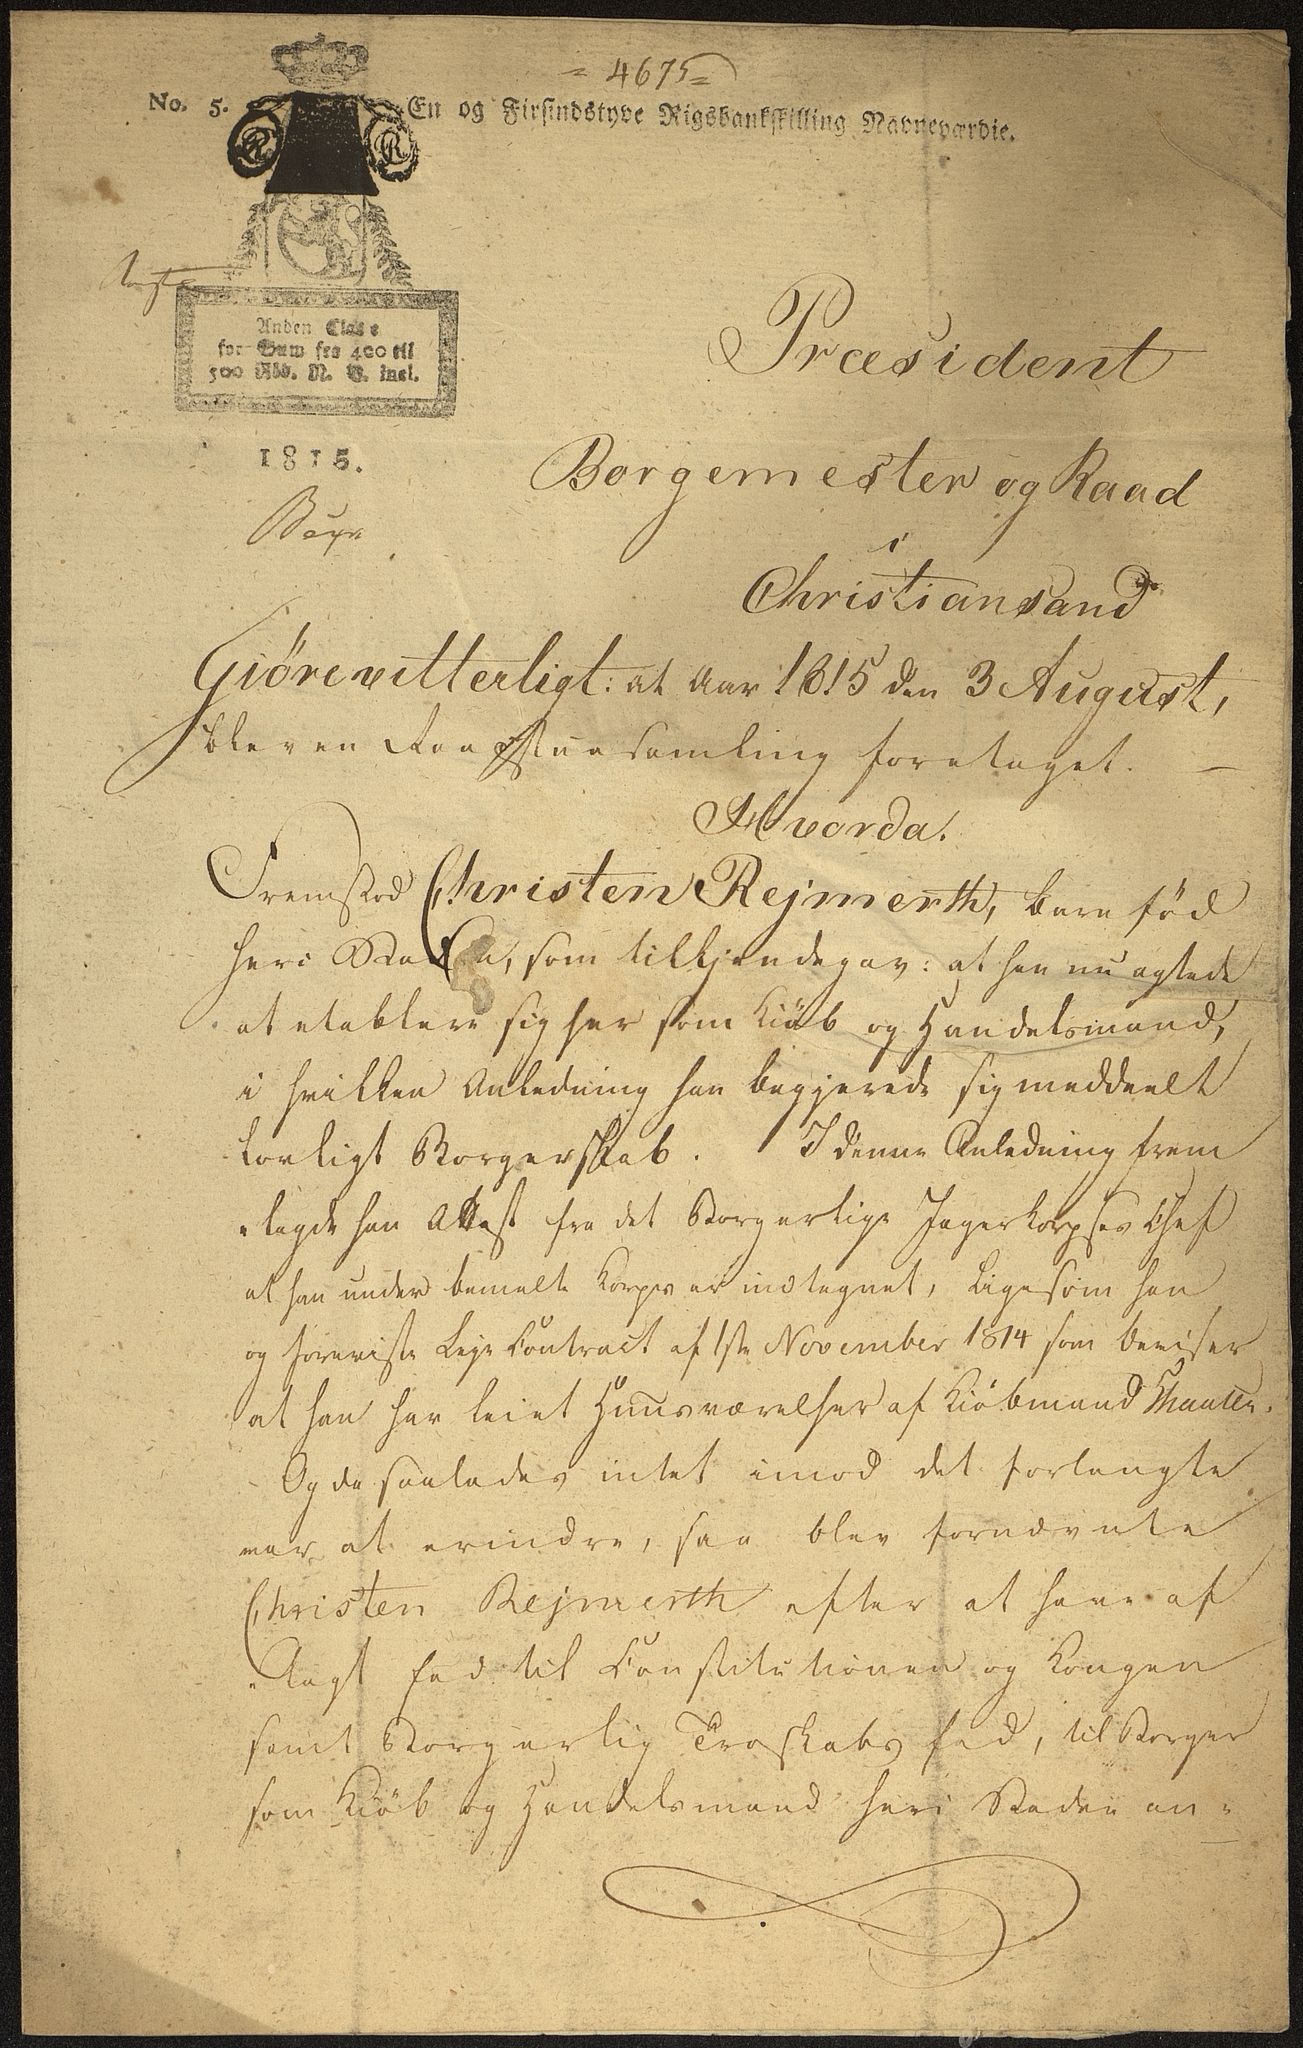 = 4675 =
No. 5. En og Firsindstyve Rigsbankskilling Navneværdie.
R R
Anden Classe
for Sum fra 400 til
500 Rbd. N. V. incl.
1815.
Præsident
Borgemester og Raad
i
Christiansand
Giöre vitterligt: at Aar 1815 den 3 August,
blev en Raadstuesamling foretaget. —
Hvorda.
Fremstod Christen Rejmerth, barn fød
her i Staden, som tilkjendegav: at han nu agtede
at etablere sig her som Kiöb og Handelsmand,
i hvilken Anledning han begjerede sig meddeelt
lovligt Borgerskab. I denne Anledning frem
„lagde han Attest fra det Borgerlige Jagerkorpses Chef
at han under bemelte Korps er indtegnet, ligesom han
og foreviste Leje Contract af 1ste November 1814 som beviser
at han har leiet Huusværelser af Kiöbmand
Og da saaledes intet imod det forlangte
var at erindre, saa blev fornævnte
Christen Rejmerth efter at have af
„lagt Eed til Constitutionen og Kongen
samt Borgerlig Troskabs Eed, til Borger
som Kiöb og Handelsmand her i Staden an-